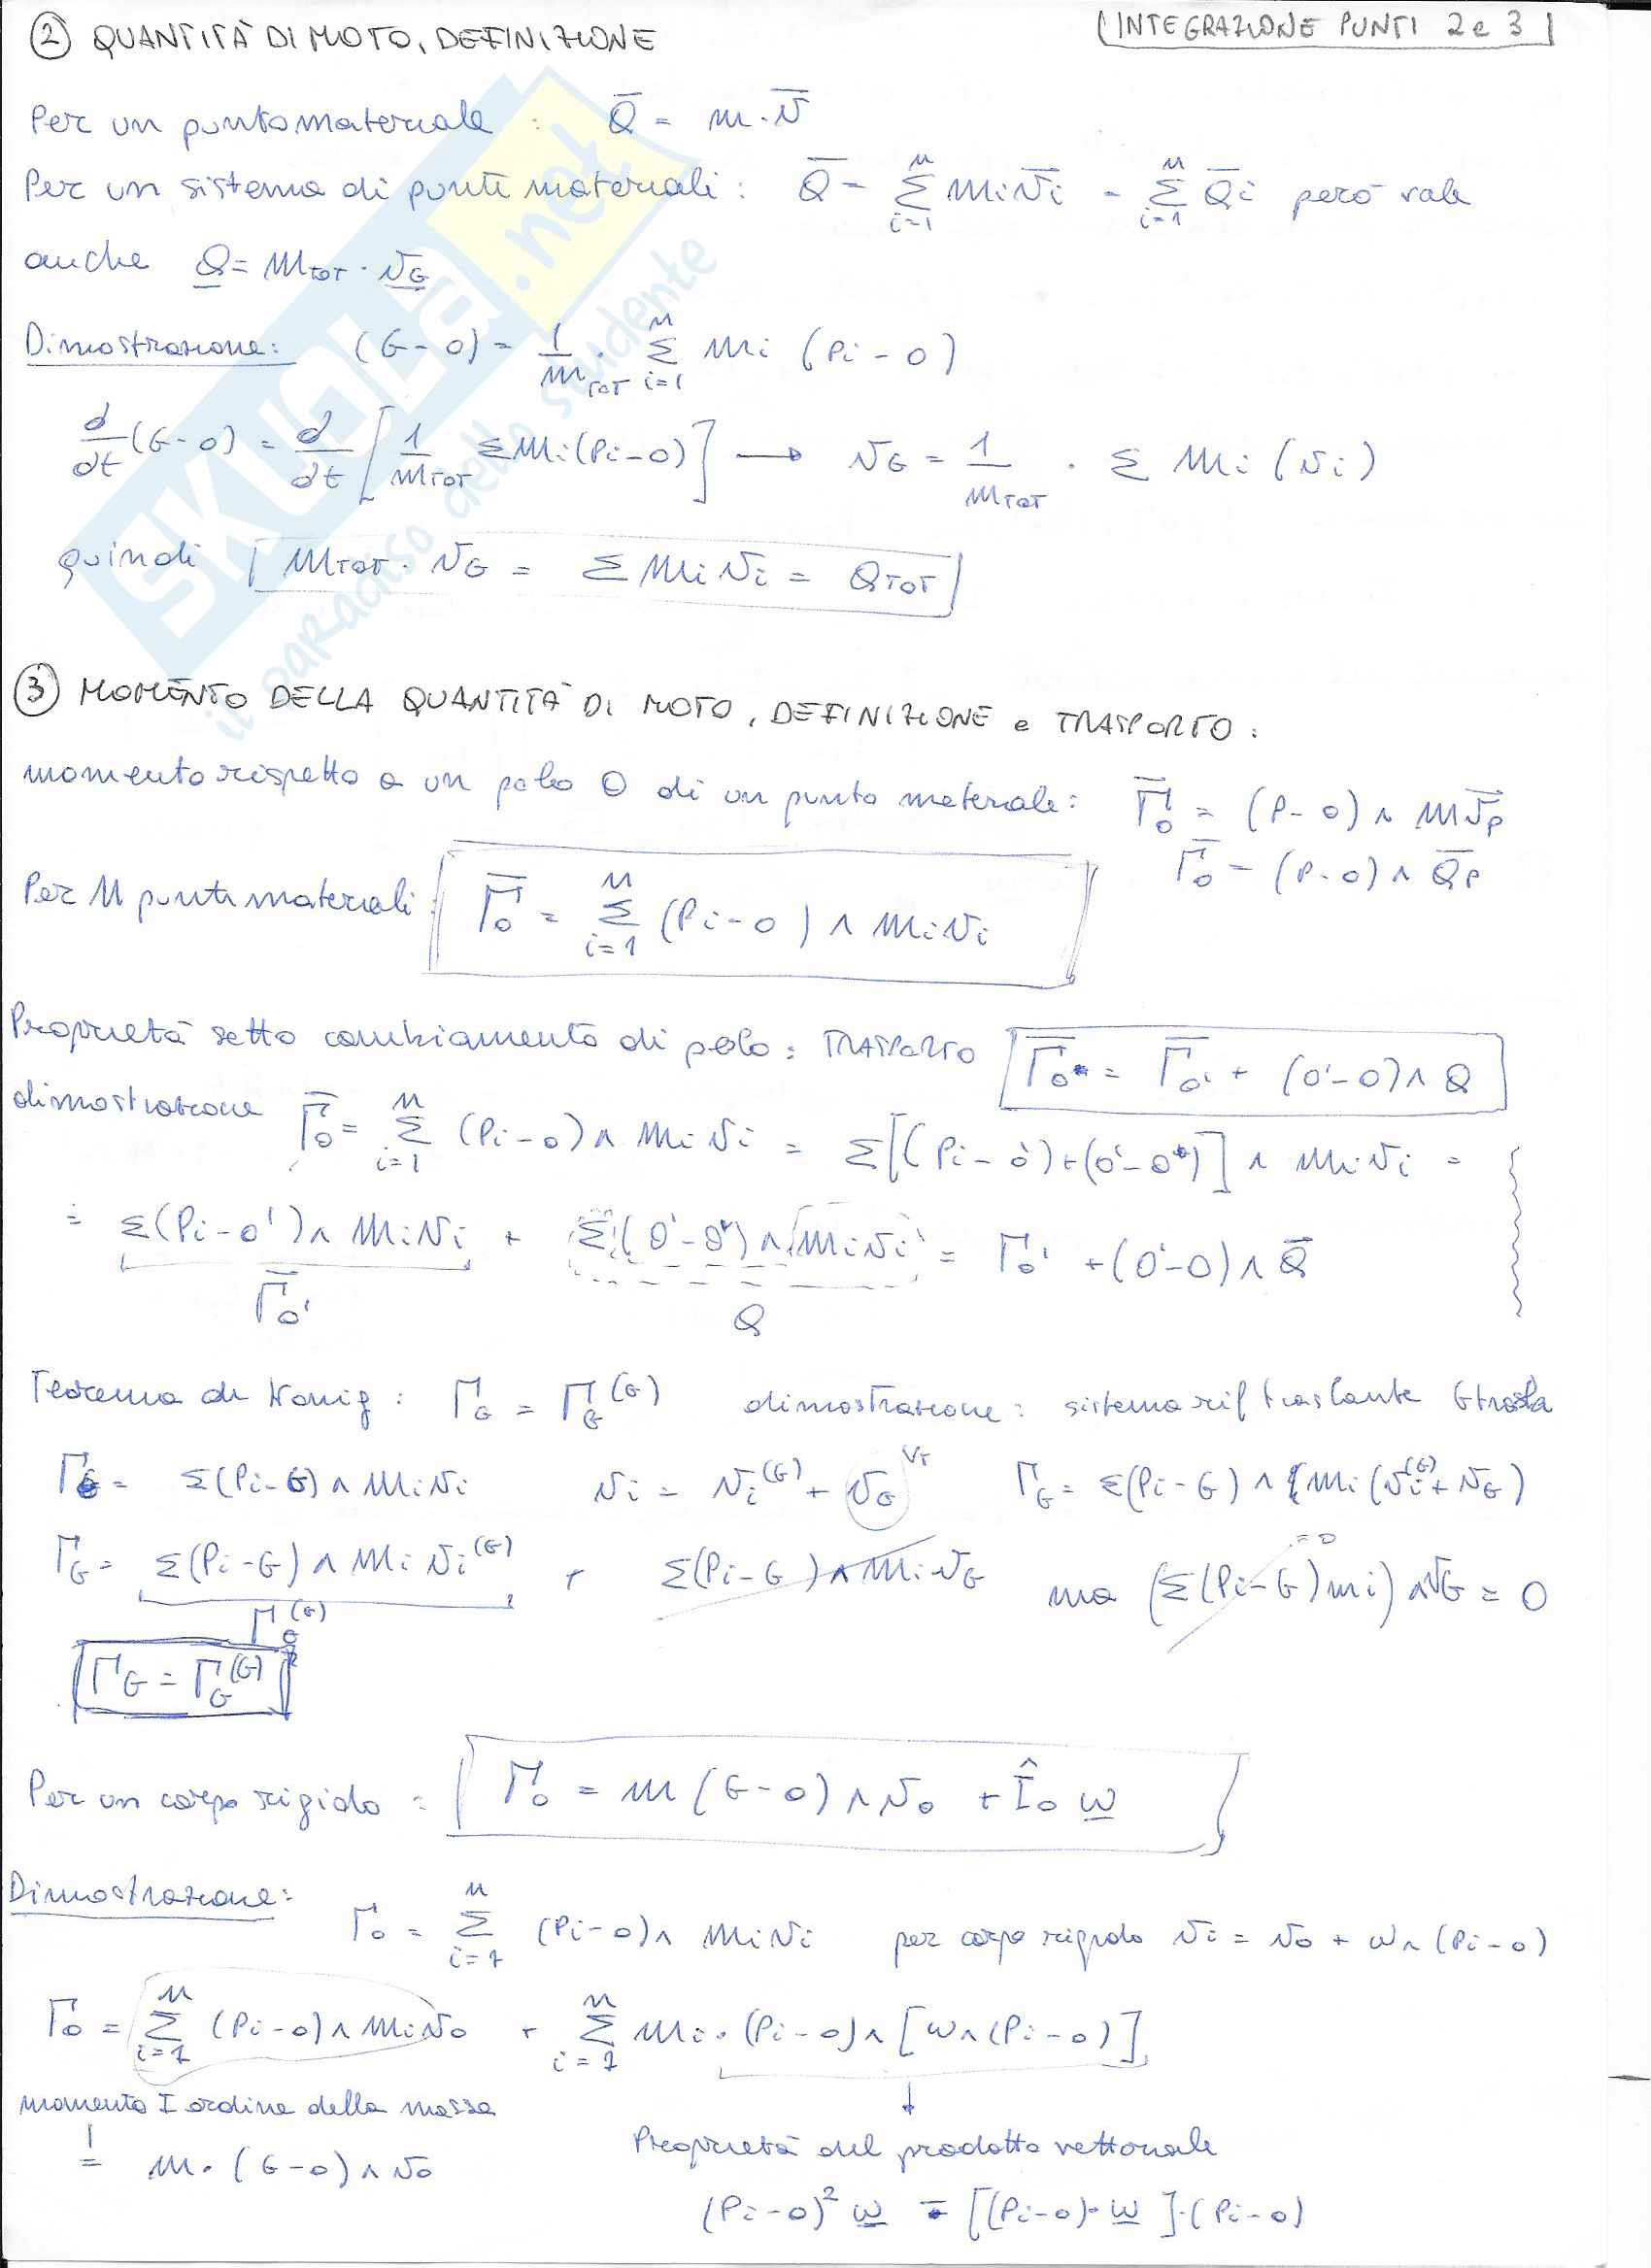 ② QUANTITÀ DI MOTO, DEFINIZIONE
(INTEGRAZIONE PUNTI 2 e 3)
Per un punto materiale : Q̅ = m·v̅
Per un sistema di punti materiali: Q̅ = Σ_{i=1}^{n} mi v̅i = Σ_{i=1}^{n} Q̅i però vale
anche Q = m_TOT · v_G
Dimostrazione: (G-O) = 1/m_TOT · Σ_{i=1}^{n} mi (Pi-O)
d/dt (G-O) = d/dt [1/m_TOT Σ mi(Pi-O)] → v_G = 1/m_TOT · Σ mi (vi)
quindi m_TOT · v_G = Σ mi vi = Q_TOT
SKUOLa.net
il paRaDiso dello studente
③ MOMENTO DELLA QUANTITÀ DI MOTO, DEFINIZIONE e TRASPORTO:
momento rispetto a un polo O di un punto materiale: Γ̅o = (P-O) ∧ m v̅p
Γ̅o = (P-O) ∧ Q̅p
Per n punti materiali: Γ̅o = Σ_{i=1}^{n} (Pi-O) ∧ mi vi
Proprietà sotto cambiamento di polo: TRASPORTO Γ̅o = Γ̅o' + (O'-O) ∧ Q
dimostrazione Γ̅o = Σ_{i=1}^{n} (Pi-O) ∧ mi vi = Σ[(Pi-O')+(O'-O)] ∧ mi vi =
= Σ(Pi-O') ∧ mi vi + Σ(O'-O) ∧ mi vi = Γo' + (O'-O) ∧ Q̅
Γ̅o' Q
Teorema di Konig: Γ_G = Γ_G^(G) dimostrazione: sistema rif traslante G trasla
Γ_G = Σ(Pi-G) ∧ mi vi vi = vi^(G) + v_G Vτ Γ_G = Σ(Pi-G) ∧ [mi (vi^(G) + v_G)
Γ_G = Σ(Pi-G) ∧ mi vi^(G) + Σ(Pi-G) ∧ mi v_G ma (Σ(Pi-G)mi) ∧ v_G = 0
= 0
Γ_G^(G)
Γ_G = Γ_G^(G)
Per un corpo rigido : Γo = m (G-O) ∧ vo + Îo ω
Dimostrazione:
Γo = Σ_{i=1}^{n} (Pi-O) ∧ mi vi per corpo rigido vi = vo + ω ∧ (Pi-O)
Γo = Σ_{i=1}^{n} (Pi-O) ∧ mi vo + Σ_{i=1}^{n} mi · (Pi-O) ∧ [ω ∧ (Pi-O)]
momento I ordine della massa
= m · (G-O) ∧ vo
↓
Proprietà del prodotto vettoriale
(Pi-O)² ω - [(Pi-O) · ω] · (Pi-O)